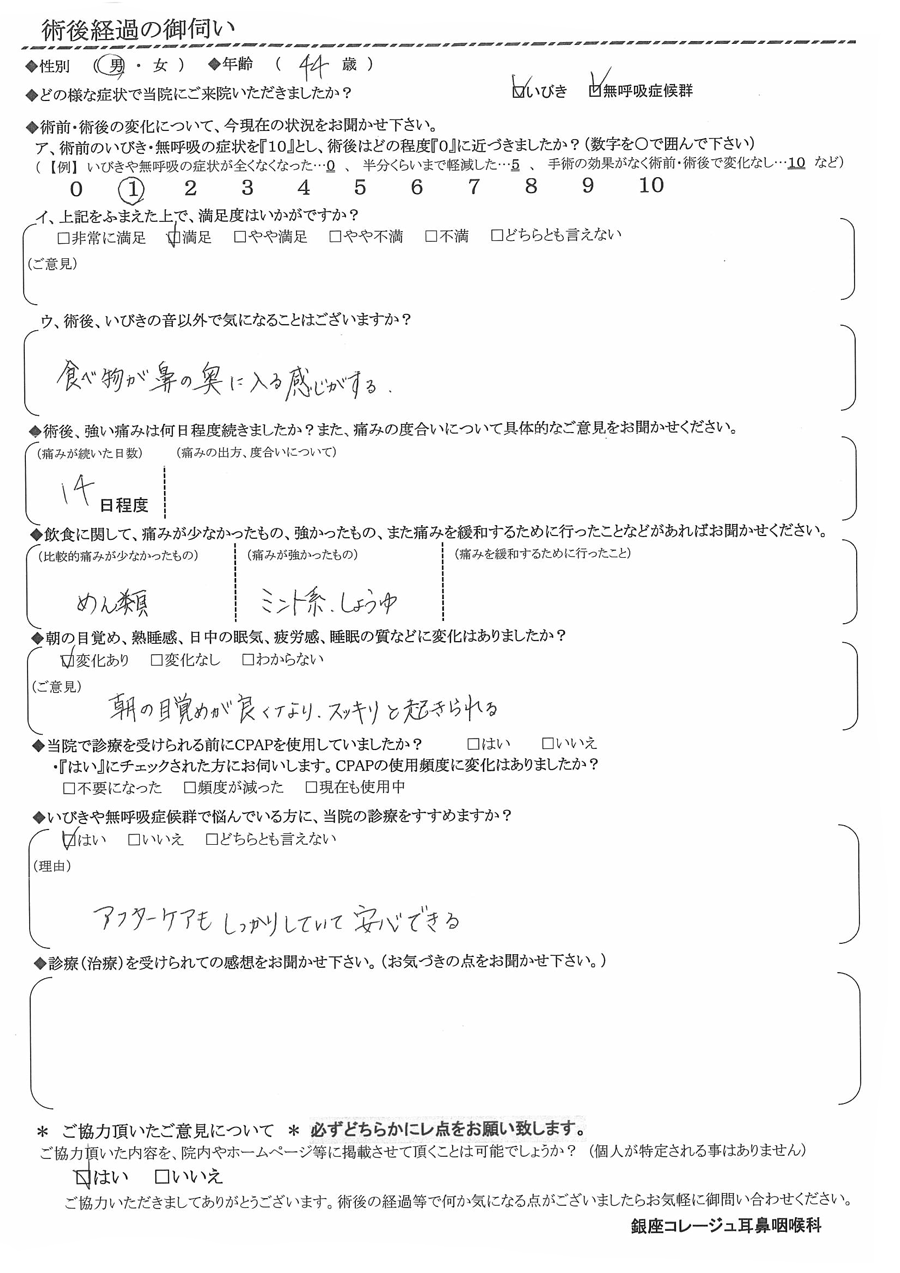 術後経過の御伺い
◆性別 (男・女) ◆年齢 (44歳)
◆どの様な症状で当院にご来院いただきましたか? ☑いびき ☑無呼吸症候群
◆術前・術後の変化について、今現在の状況をお聞かせ下さい。
ア、術前のいびき・無呼吸の症状を『10』とし、術後はどの程度『0』に近づきましたか?(数字を〇で囲んで下さい)
(【例】いびきや無呼吸の症状が全くなくなった…0 、 半分くらいまで軽減した…5 、 手術の効果がなく術前・術後で変化なし…10 など)
0 1 2 3 4 5 6 7 8 9 10
イ、上記をふまえた上で、満足度はいかがですか?
□非常に満足 ☑満足 □やや満足 □やや不満 □不満 □どちらとも言えない
(ご意見)
ウ、術後、いびきの音以外で気になることはございますか?
食べ物が鼻の奥に入る感じがする.
◆術後、強い痛みは何日程度続きましたか?また、痛みの度合いについて具体的なご意見をお聞かせください。
(痛みが続いた日数) (痛みの出方、度合いについて)
14日程度
◆飲食に関して、痛みが少なかったもの、強かったもの、また痛みを緩和するために行ったことなどがあればお聞かせください。
(比較的痛みが少なかったもの) (痛みが強かったもの) (痛みを緩和するために行ったこと)
めん類 ミント系.しょうゆ
◆朝の目覚め、熟睡感、日中の眠気、疲労感、睡眠の質などに変化はありましたか?
☑変化あり □変化なし □わからない
(ご意見)
朝の目覚めが良くなり.スッキリと起きられる
◆当院で診療を受けられる前にCPAPを使用していましたか? □はい □いいえ
・『はい』にチェックされた方にお伺いします。CPAPの使用頻度に変化はありましたか?
□不要になった □頻度が減った □現在も使用中
◆いびきや無呼吸症候群で悩んでいる方に、当院の診療をすすめますか?
☑はい □いいえ □どちらとも言えない
(理由)
アフターケアもしっかりしていて安心できる
◆診療(治療)を受けられての感想をお聞かせ下さい。(お気づきの点をお聞かせ下さい。)
＊ ご協力頂いたご意見について ＊ 必ずどちらかにレ点をお願い致します。
ご協力頂いた内容を、院内やホームページ等に掲載させて頂くことは可能でしょうか? (個人が特定される事はありません)
☑はい □いいえ
ご協力いただきましてありがとうございます。術後の経過等で何か気になる点がございましたらお気軽に御問い合わせください。
銀座コレージュ耳鼻咽喉科